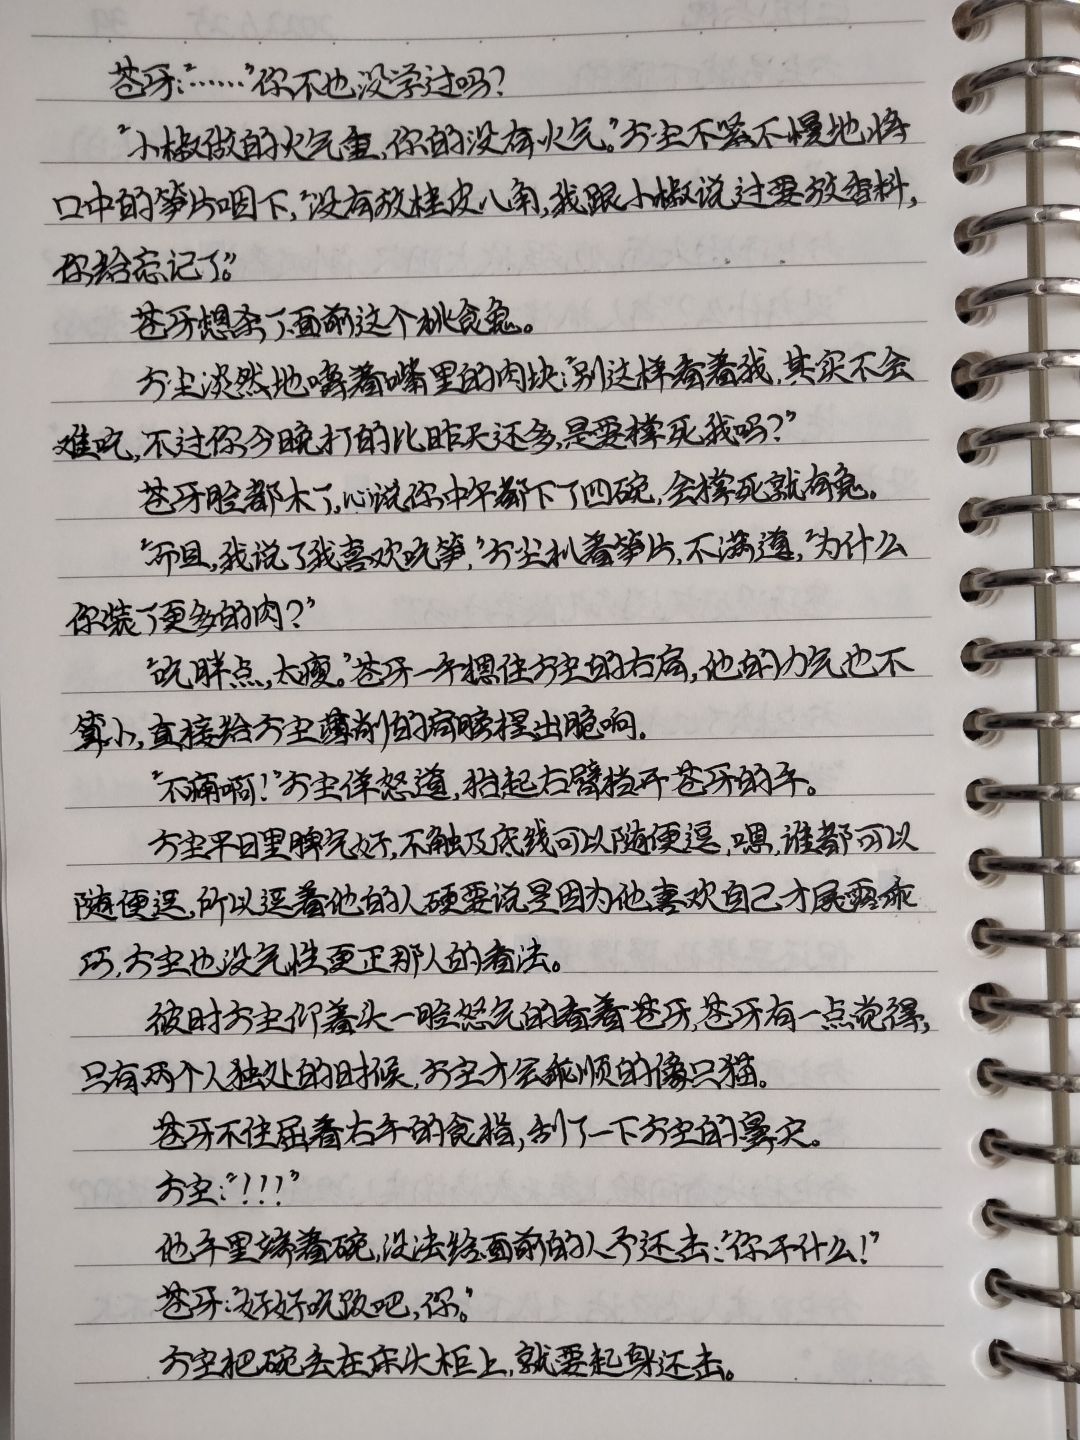 苍牙:“……”你不也没学过吗?
“小椒做的火气重,你的没有火气。”方尘不紧不慢地将
口中的笋片咽下,“没有放桂皮八角,我跟小椒说过要放香料,
你给忘记了。”
苍牙想杀了面前这个挑食鬼。
方尘淡然地嚼着嘴里的肉块:“别这样看着我,其实不会
难吃,不过你今晚打的比昨天还多,是要撑死我吗?”
苍牙脸都木了,心说你中午都下了四碗,会撑死就有鬼。
“而且,我说了我喜欢吃笋,”方尘扒着笋片,不满道,“为什么
你装了更多的肉?”
“吃胖点,太瘦。”苍牙一手摁住方尘的右肩,他的力气也不
算小,直接给方尘薄削的肩膀捏出脆响。
“不痛啊!”方尘佯怒道,抬起右臂挡开苍牙的手。
方尘平日里脾气好,不触及底线可以随便逗,嗯,谁都可以
随便逗,所以逗着他的人硬要说是因为他喜欢自己才展露乖
巧,方尘也没气性更正那人的看法。
彼时方尘仰着头一脸怒气的看着苍牙,苍牙有一点觉得,
只有两个人独处的时候,方尘才会乖顺的像只猫。
苍牙不住屈着右手的食指,刮了一下方尘的鼻尖。
方尘:“!!!”
他手里端着碗,没法给面前的人予还击:“你干什么!”
苍牙:“好好吃饭吧,你。”
方尘把碗丢在床头柜上,就要起身还击。